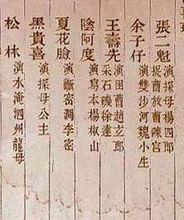 張一魁 演探母楊四郎 捉放曹陳宮
余子仔 演雙沙河魏小生
王壽先 演曹趙玄郎 采石磯徐達
陰阿度 演寫本楊椒山
夏花臉 演斷密澗李密
黑貴喜 演探母公主
松林 演水淹泗州龍母